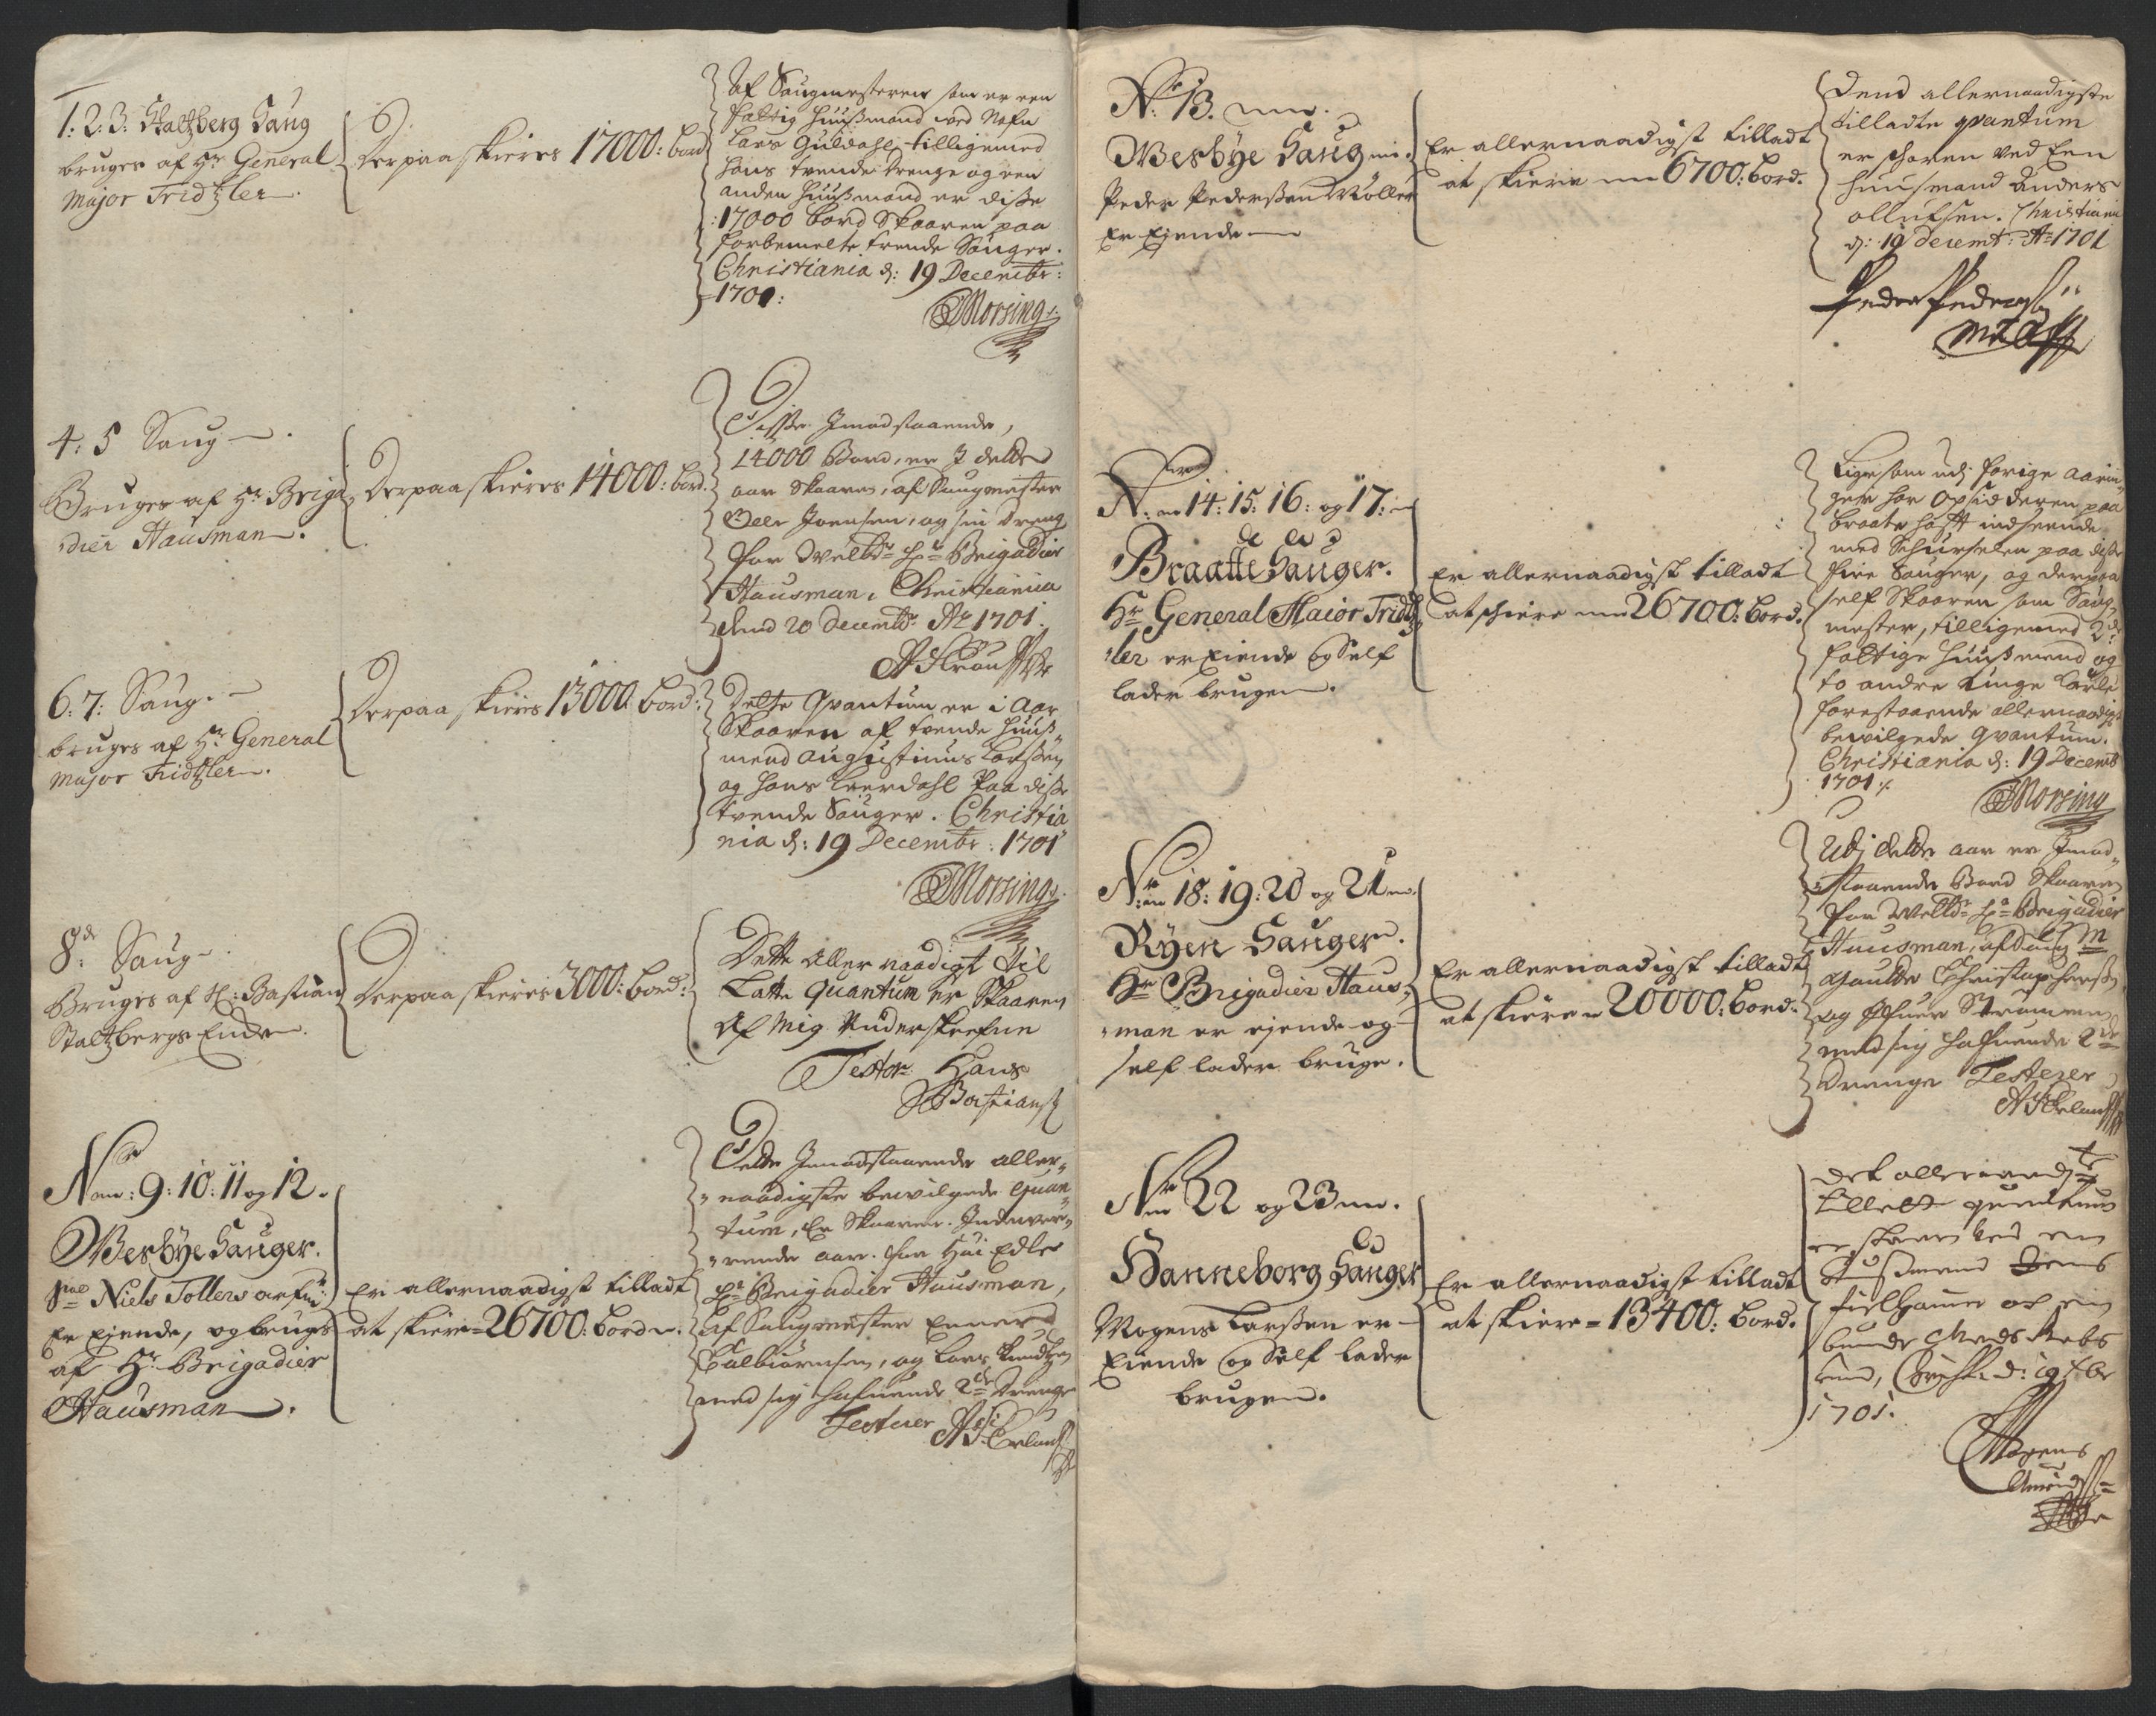 1: 2: 3: Staltzberg Saug
bruges af Hr General
Major Tridtzler
Derpaa skieres 17000: bord
Af Saugmesteren som er een
fattig huusmand ved Nafn
Lars Guldahl, tilligemed
hans tvende drenge og een
anden huusmand er disse
17000 bord Skaaren paa
forbemelte trende Sauger.
Christiania d: 19 Decembr:
1701:
Morsing
4: 5 Saug
Bruges af Hr Briga
dier Hausman.
Derpaa skieres 14000: bord.
Disse Imodstaaende,
14000 Bord, er I dette
aar Skaaren, af Saugmester
Joensen, og sin dreng
for Welbr Hr Brigadier
Hausman, Christiania
dend 20 Decembr Ao 1701.
6: 7: Saug
bruges af Hr General
Major Tridtzler.
Derpaa skieris 13000 bord:
Dette Qvantum er i Aar
Skaaren af tvende huus
mend Augustinus Larsen
og Hans Leerdahl Paa disse
tvende Sauger. Christia
nia d: 19 Decembr: 1701
Morsing
8de Saug
Bruges af H: Bastian
Staltzbergs Enke.
Derpaa skieres 3000: bord:
Dette Aller naadigst til
Latte Quantum er Skaaren
Af Mig Underskrefne
Tester Hans
Bastians
No: 9: 10: 11 og 12.
Wesbye Sauger.
Sal Niels Tollers arfu
Er Ejende, og bruges
af Hr Brigadier
Hausman.
Er allernaadigst tilladt
at skiere 26700: bord.
Dette Imodstaaende aller
naadigste bewilgede Quan
tum, Er Skaaren. Indewæ
rende aar. for Høi Edle
Hr Brigadier Hausman,
af Saugmester Enner
Culbiørnsen, og Lars Knudsen
med sig hafuende 2de Drenge
Testerer
No 13.
Wesbye Saug
Peder Pedersen Møller
Er Ejende
Er allernaadigst tilladt
at skiere 6700: bord.
Dend allernaadigste
tilladte qvantum
er skaren ved Een
huusmand Anders
Ollufsen. Christiania
d: 19 decemb: Ao 1701
Peder Peders
No 14: 15: 16: og 17:
Braatte Sauger.
Hr General Maior Tridtz
ler er Eiende og Self
lader brugen.
Er allernaadigst tilladt
at schiere 26700: bord.
Ligesom udj forige Aarin
ger har Opsidderen paa
braate hafft indseende
med Schurselen paa disse
fire Sauger, og derpaa
self Skaaren som Saug
mester, tilligemed 2de
fattige huusmend og
to andre unge Karle
forestaaende allernaadigst
bewilgede Qvantum.
Christiania d: 19 Decemb
1701
Morsing
No 18: 19: 20 og 21
Ryen Sauger.
Hr Brigadier Haus
man er ejende og
self lader bruge.
Er allernaadigst tilladt
at skiere 20000: bord.
Udj dette aar er Imod
staaende Bord Skaaren
for Welbr Hr Brigadier
Hausman, af Saug M
Gaute Christophersen
og
med sig hafuende 2de
Drenge Testerer
No 22 og 23
Hanneborg Sauger
Mogens Larsen er
Eiende og Self lader
brugen.
Er allernaadigst tilladt
at skiere 13400: bord.
Det allernaadigste
tillatte quantum
er skaaren ved en
Husmand Jens
og en
bunde
d: 19
1701.
Mogens